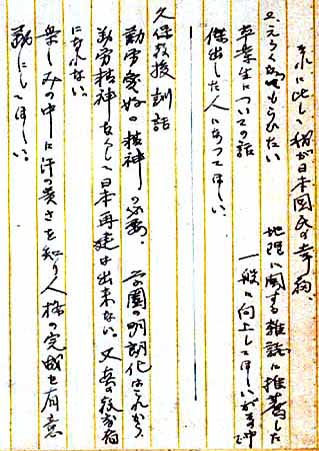 それに比し、我が日本国民の幸福、
2、えらくなってもらひたい
地理に関する雑誌に推薦した
卒業生についての話
一般に向上してほしいが、その中
傑出した人になってほしい。
久保教授 訓話
勤労愛好の精神の必要、学園の明朗化はこれから、
勤労精神なくして日本再建は出来ない。又
になれない。
楽しみの中に汗の貴さを知り人格の完成を有意
義にしてほしい。